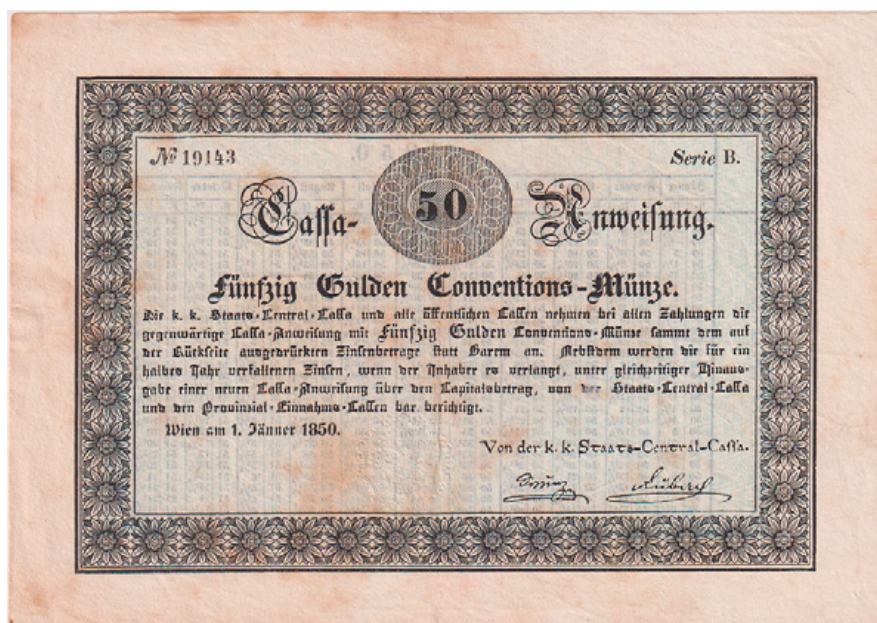 № 19143 Serie B.
50
Cassa-Anweisung.
Fünfzig Gulden Conventions-Münze.
Die k. k. Staats-Central-Cassa und alle öffentlichen Cassen nehmen bei allen Zahlungen die
gegenwärtige Cassa-Anweisung mit Fünfzig Gulden Conventions-Münze sammt dem auf
der Rückseite ausgedrückten Zinsenbetrage statt Barem an. Nebstdem werden die für ein
halbes Jahr verfallenen Zinsen, wenn der Inhaber es verlangt, unter gleichzeitiger Hinaus-
gabe einer neuen Cassa-Anweisung über den Capitalsbetrag, von der Staats-Central-Cassa
und den Provinzial-Einnahms-Cassen bar berichtigt.
Wien am 1. Jänner 1850.
Von der k. k. Staats-Central-Cassa.